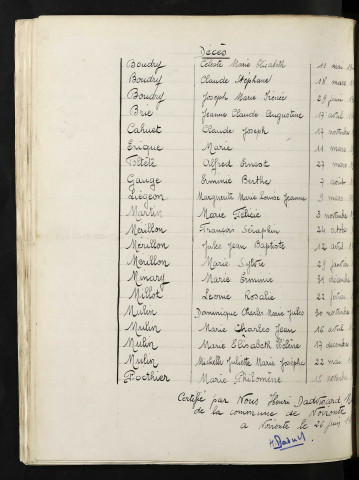 Décès
Boudry Céleste Marie Elisabeth 12 mai
Boudry Claude Stephane 18 mars
Boudry Joseph Marie Irénée 29 juin
Brie Jeanne Claude Augustine 17 avril
Cahuet Claude Joseph 17 novembre
Erique Marie 11 mars
Tététe Alfred Ernest 27 mars
Gauge Erminie Berthe 7 août
Liégeon Marguerite Marie Louise Jeanne 3 mars
Martin Marie Félicie 3 novembre
Mérillon François Séraphin 24 octobre
Mérillon Jules Jean Baptiste 12 avril
Mérillon Marie Sylvie 29 janvier
Minary Marie Erminie 31 décembre
Millot Leonie Rosalie 22 février
Mulin Dominique Charles Marie Jules 30 novembre
Mulin Marie Charles Jean 16 avril
Mulin Marie Elisabeth Hélène 17 décembre
Mulin Michelle Juliette Marie Josèphe 22 mai
Porthier Marie Philomène 15 octobre
Certifié par Nous Henri
de la commune de Noironte
à Noironte le 26 juin